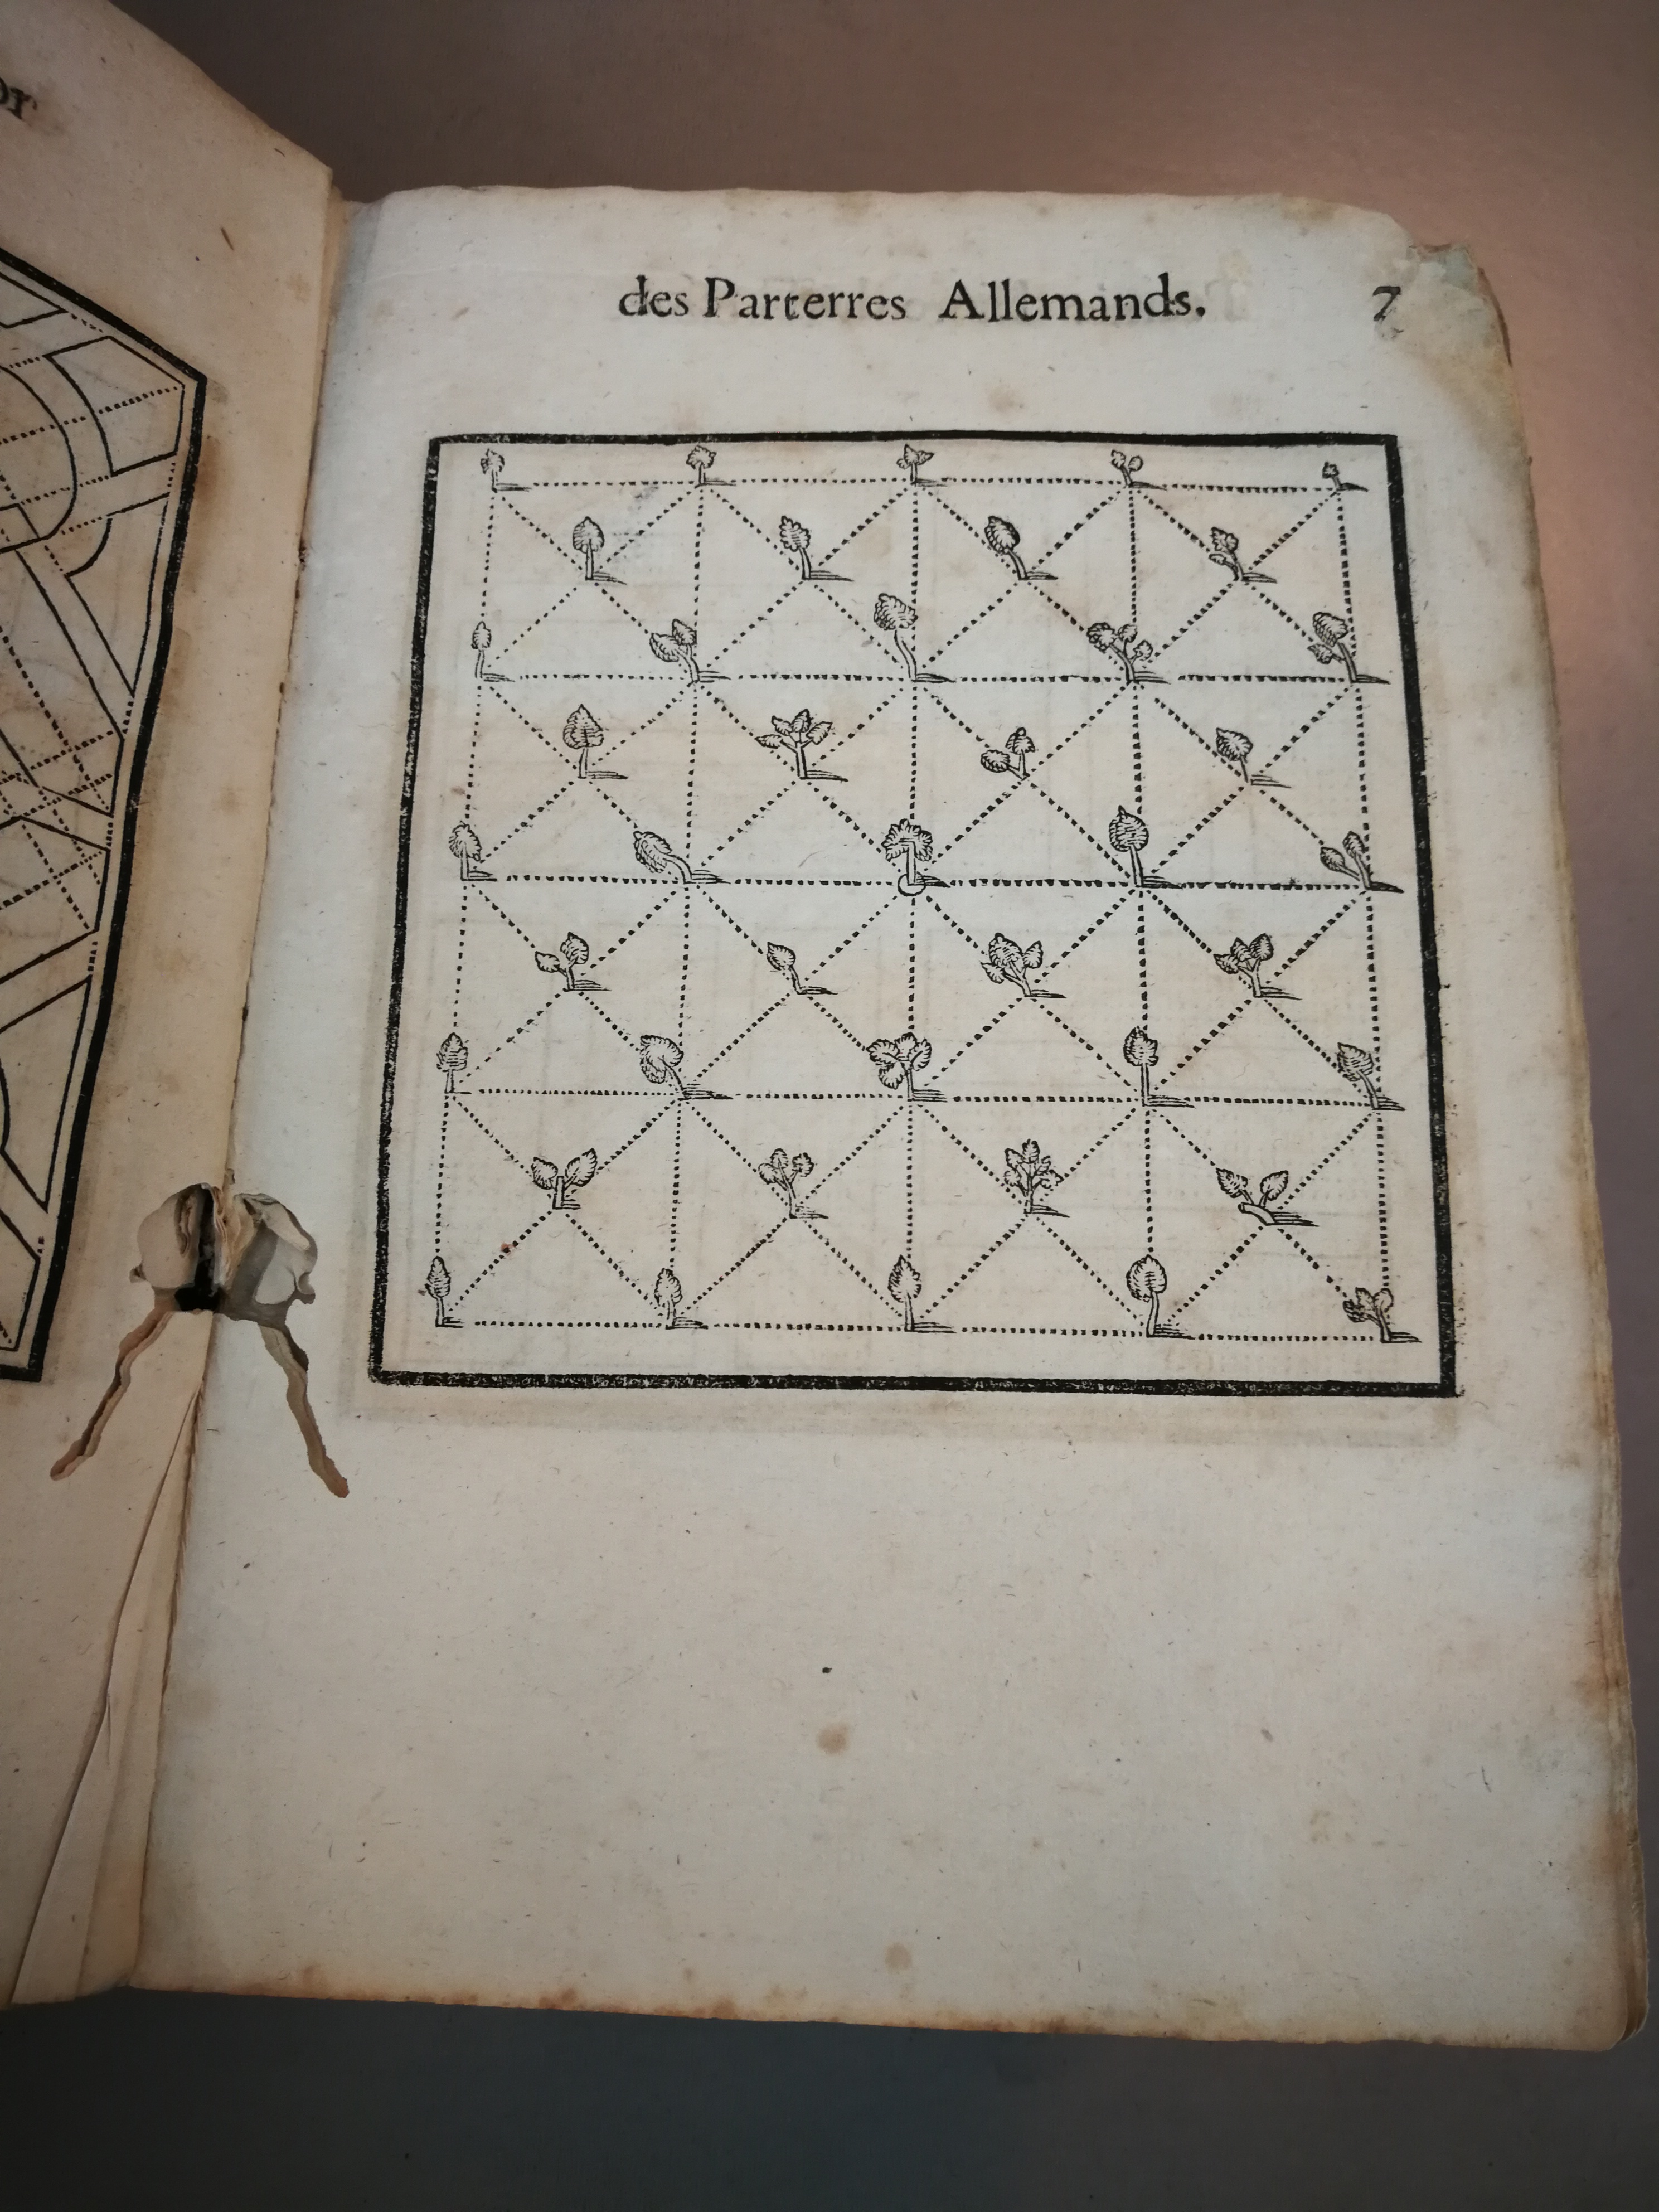 des Parterres Allemands. 7